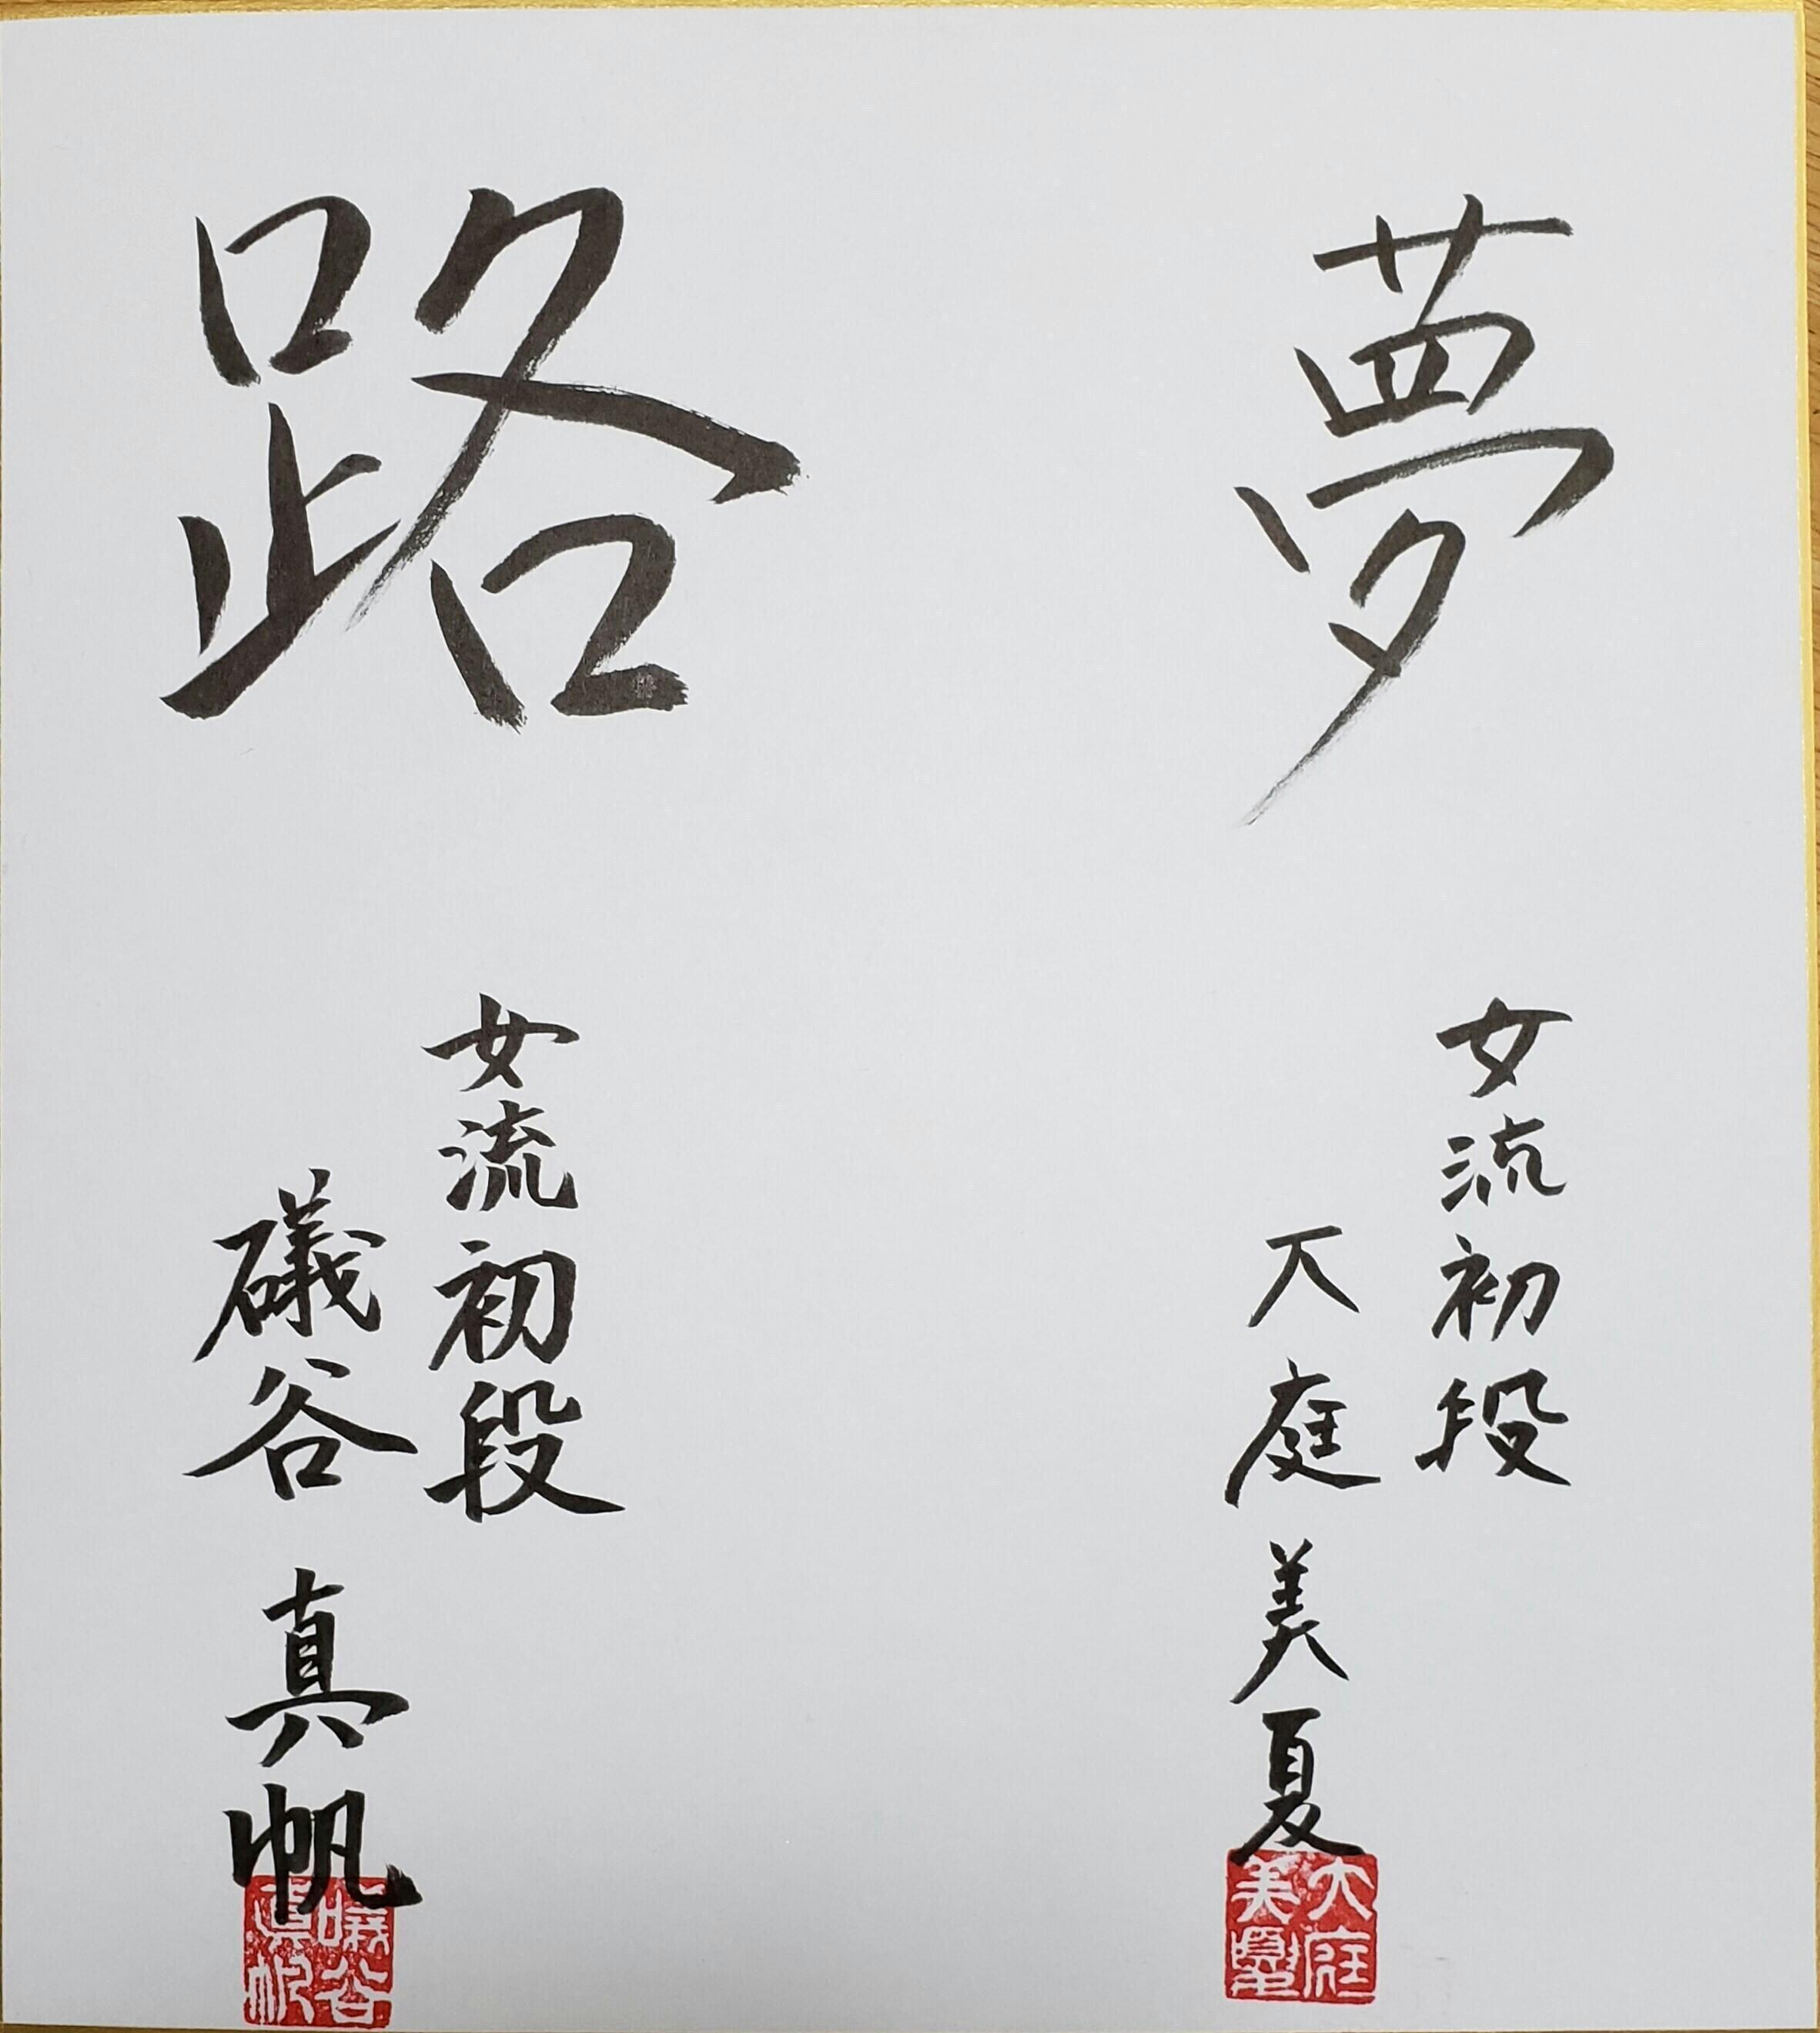 夢
女流初段
大庭美夏
大庭美夏
路
女流初段
礒谷真帆
礒谷真帆